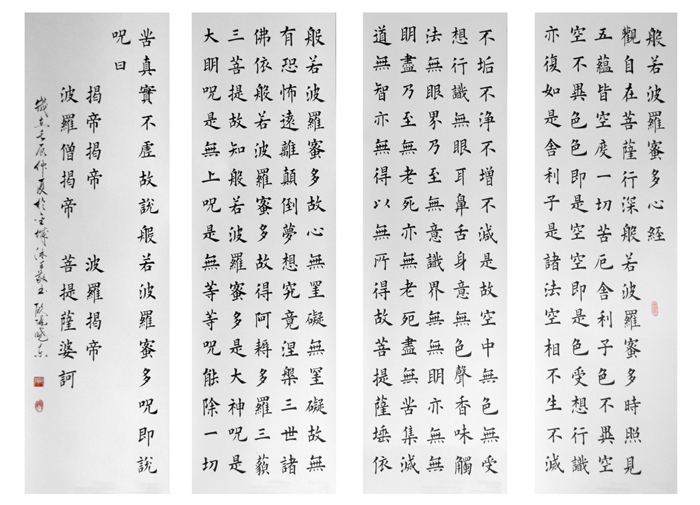 般若波羅蜜多心經
觀自在菩薩行深般若波羅蜜多時照見
五蘊皆空度一切苦厄舍利子色不異空
空不異色色即是空空即是色受想行識
亦復如是舍利子是諸法空相不生不滅
不垢不淨不增不減是故空中無色無受
想行識無眼耳鼻舌身意無色聲香味觸
法無眼界乃至無意識界無無明亦無無
明盡乃至無老死亦無老死盡無苦集滅
道無智亦無得以無所得故菩提薩埵依
般若波羅蜜多故心無罣礙無罣礙故無
有恐怖遠離顛倒夢想究竟涅槃三世諸
佛依般若波羅蜜多故得阿耨多羅三藐
三菩提故知般若波羅蜜多是大神呪是
大明呪是無上呪是無等等呪能除一切
苦真實不虛故說般若波羅蜜多呪即說
呪曰
揭帝揭帝 波羅揭帝
波羅僧揭帝 菩提薩婆訶
歲在壬辰仲夏於